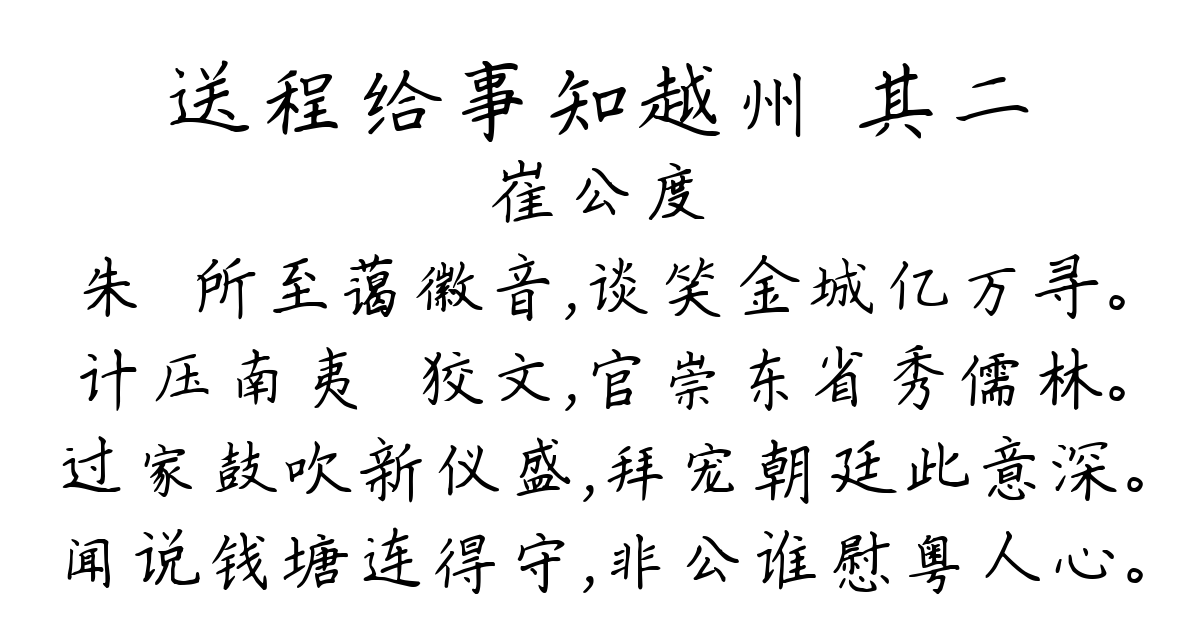 送程给事知越州 其二
崔公度
朱 所至蔼徽音,谈笑金城亿万寻。
计压南夷 狡文,官崇东省秀儒林。
过家鼓吹新仪盛,拜宠朝廷此意深。
闻说钱塘连得守,非公谁慰粤人心。